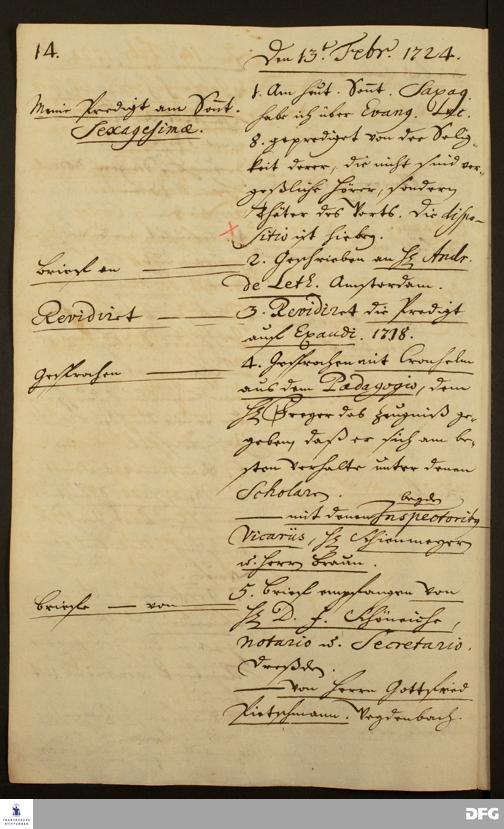 14.
Den 13t. Febr. 1724.
Meine Predigt am Sont.
Sexagesimæ.
1. Am heut. Sont. Sexag.
habe ich über Evang. Luc.
8. geprediget von der Selig-
keit derer, die nicht sind ver-
geßliche Hörer, sondern
Thäter des Worts. Die dispo-
sitio ist hieben.
Brief an
2. Geschrieben an H Andr.
de Leth. Amsterdam.
Revidiret
3. Revidiret die Predigt
auf Exaudi. 1718.
Gesprochen
4. Gesprochen mit Cronhelm
aus dem Pædagogio, dem
H Freyer das Zeugniß ge-
geben, daß er sich am be-
sten verhalte unter denen
Scholaren.
— mit denen beyden Inspectorits
Vicariis, H Schienmeyer
u. Herrn Braun.
Briefe — von
5. Brief empfangen von
H D. J. Schöneiche,
Notario u. Secretario.
Dreßden.
— von Herrn Gottfried
Pietschmann.
FRANCKESCHE
STIFTUNGEN
DFG